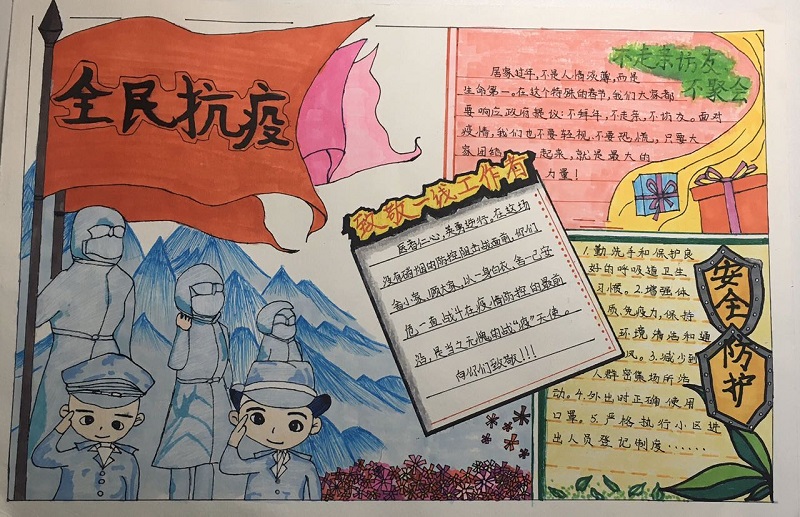 全民抗疫
不走亲访友
不聚会
居家过年,不是人情淡薄,而是
生命第一。在这个特殊的春节,我们大家都
要响应政府提议:不拜年,不走亲,不访友。面对
疫情,我们也不要轻视,不要恐慌,只要大
家团结
起来,就是最大的
力量!
致敬一线工作者
医者仁心,英勇逆行。在这场
没有硝烟的防控阻击战面前,你们
舍小家,顾大家,以一身白衣,舍一己安
危,一直战斗在疫情防控的最前
沿,是当之无愧的战“疫”天使。
向你们致敬!!!
安全
防护
1.勤洗手和保护良
好的呼吸道卫生
习惯。2.增强体
质,免疫力,保持
环境清洁和通
风。3.减少到
人群密集场所活
动。4.外出时正确使用
口罩。5.严格执行小区进
出人员登记制度……